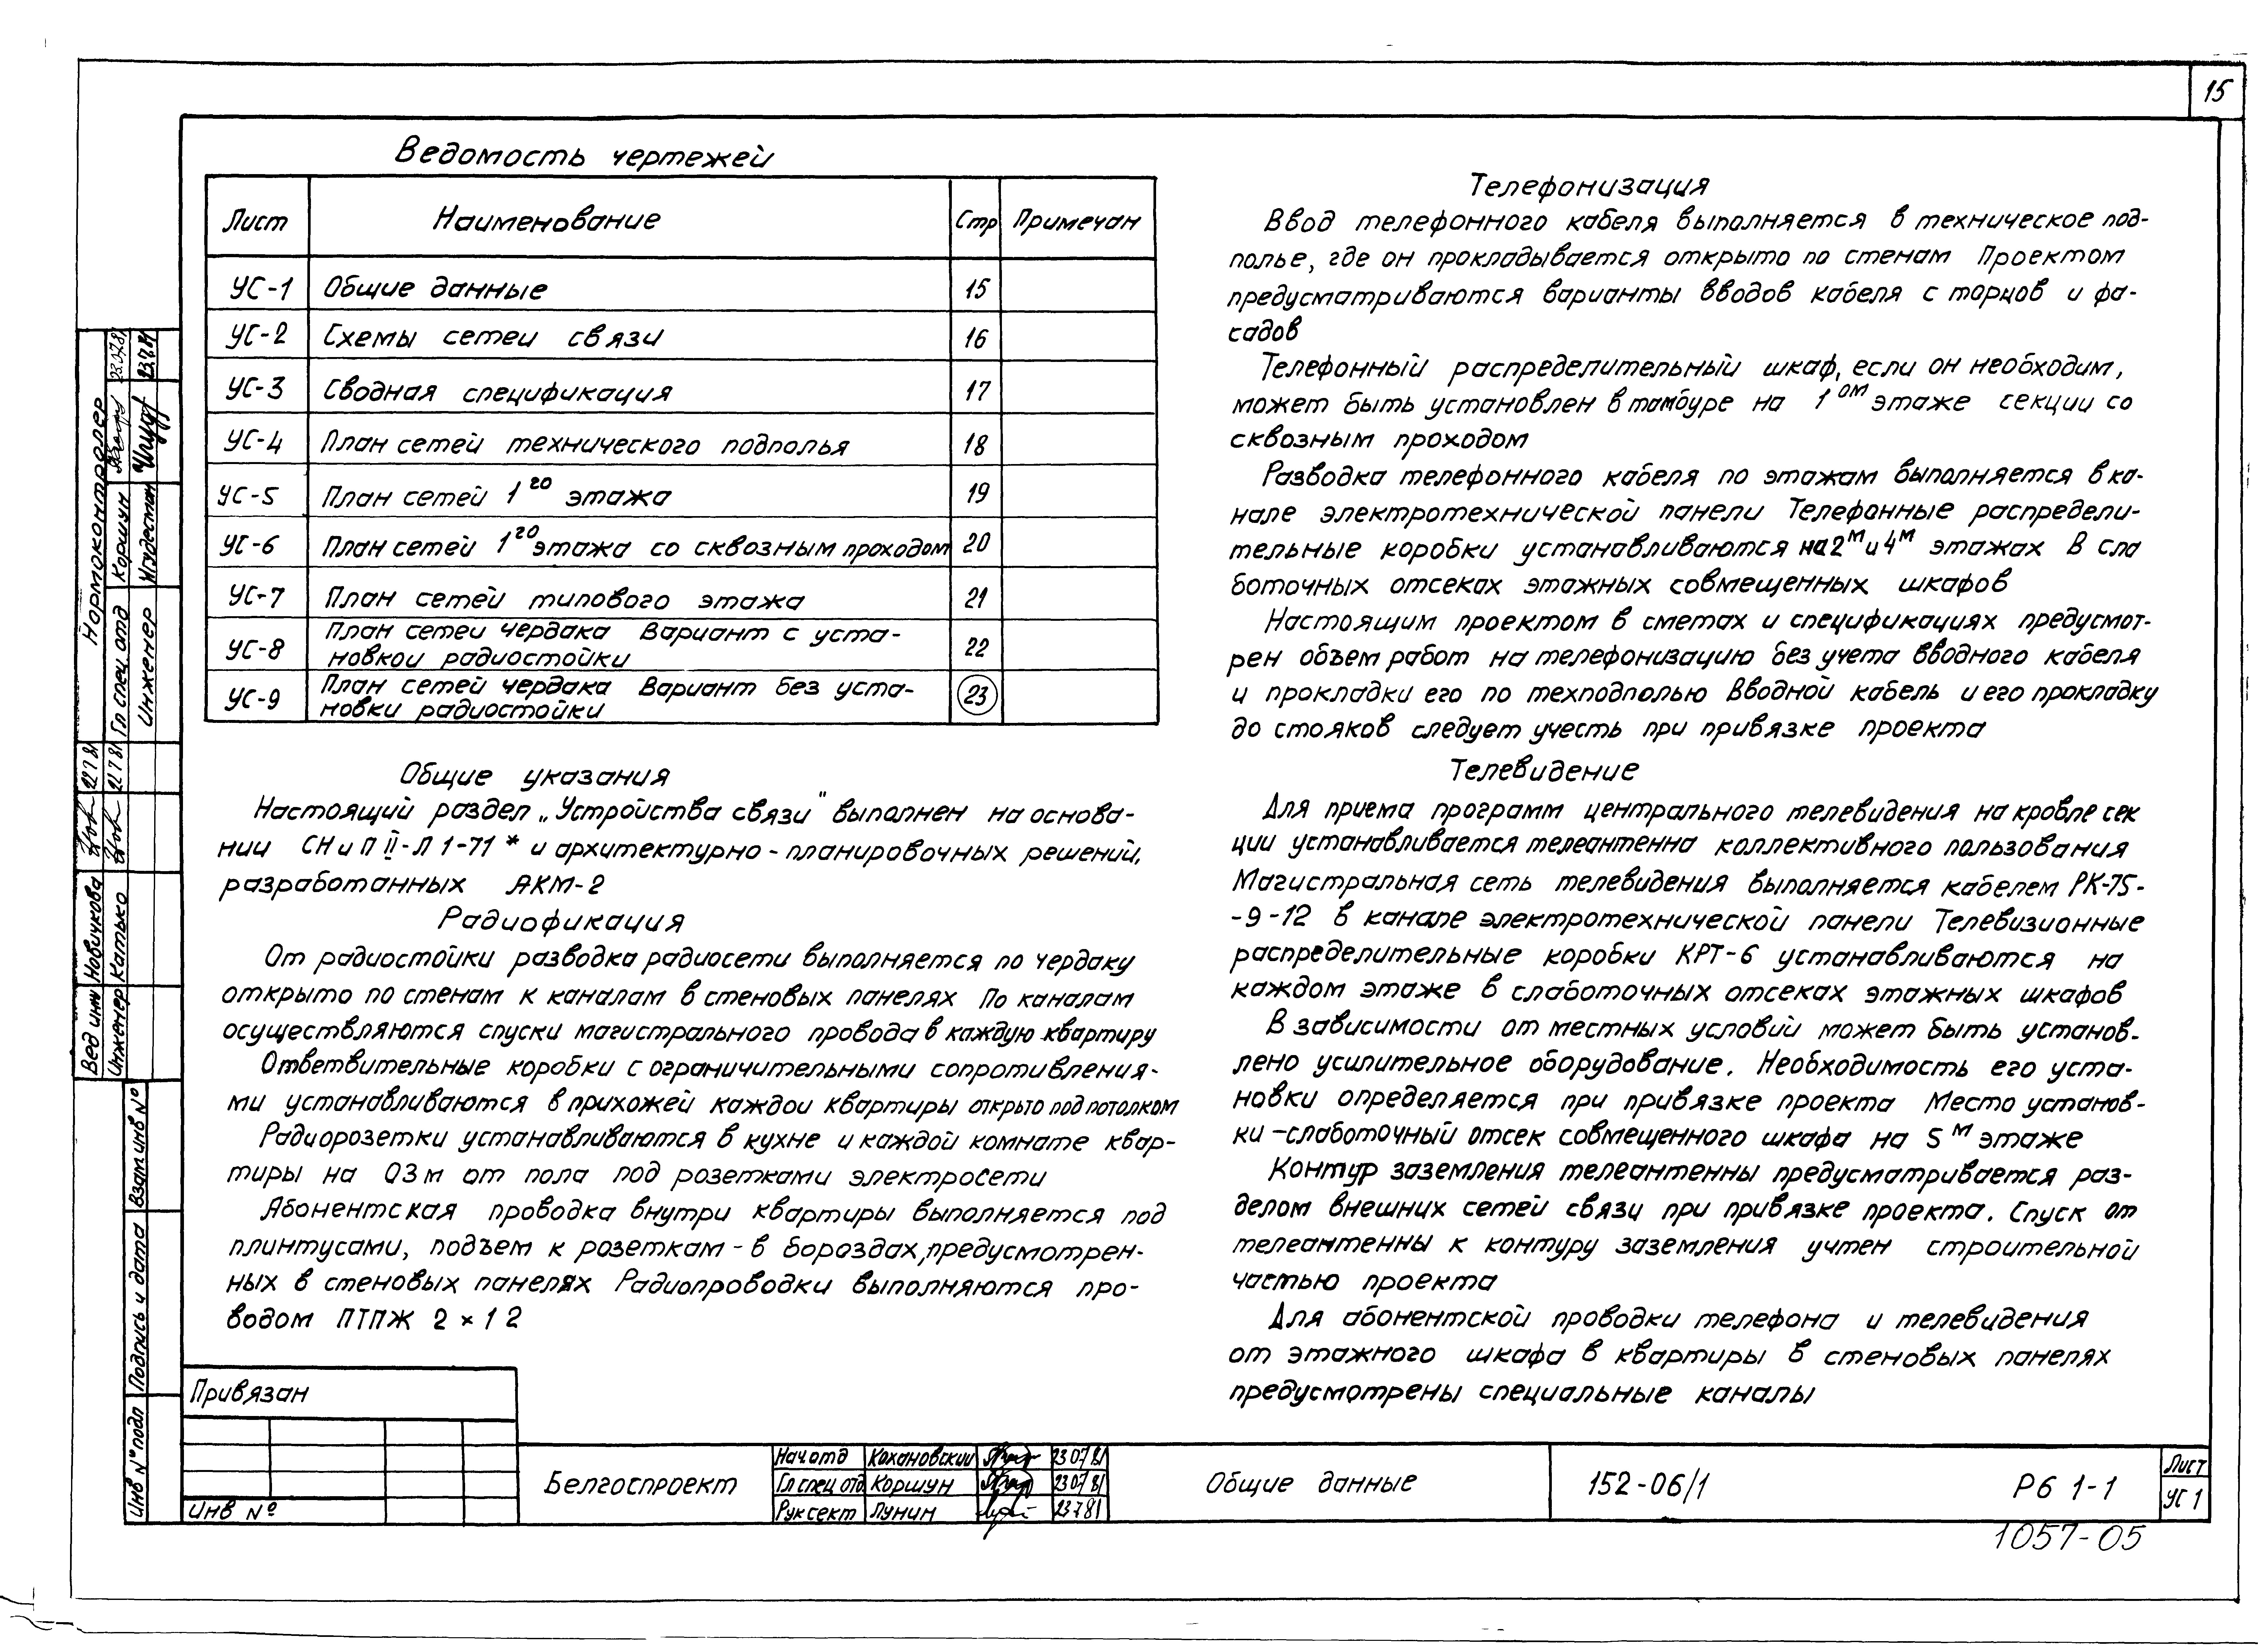 15
Ведомость чертежей
Лист Наименование Стр Примечан
УС-1 Общие данные 15
УС-2 Схемы сетей связи 16
УС-3 Сводная спецификация 17
УС-4 План сетей технического подполья 18
УС-5 План сетей 1го этажа 19
УС-6 План сетей 1го этажа со сквозным проходом 20
УС-7 План сетей типового этажа 21
УС-8 План сетей чердака Вариант с уста-
новкои радиостойки 22
УС-9 План сетей чердака Вариант без уста-
новки радиостойки 23
Общие указания
Настоящий раздел „Устройства связи" выполнен на основа-
нии СНиП II-Л 1-71* и архитектурно-планировочных решений,
разработанных АКМ-2
Радиофикация
От радиостойки разводка радиосети выполняется по чердаку
открыто по стенам к каналам в стеновых панелях По каналам
осуществляются спуски магистрального провода в каждую квартиру
Ответвительные коробки с ограничительными сопротивления-
ми устанавливаются в прихожей каждои квартиры открыто под потолком
Радиорозетки устанавливаются в кухне и каждой комнате квар-
тиры на 03м от пола под розетками электросети
Абонентская проводка внутри квартиры выполняется под
плинтусами, подъем к розеткам - в бороздах, предусмотрен-
ных в стеновых панелях Радиопроводки выполняются про-
водом ПТПЖ 2×1 2
Телефонизация
Ввод телефонного кабеля выполняется в техническое под-
полье, где он прокладывается открыто по стенам Проектом
предусматриваются варианты вводов кабеля с торцов и фа-
садов
Телефонный распределительный шкаф, если он необходим,
может быть установлен в тамбуре на 1ом этаже секции со
сквозным проходом
Разводка телефонного кабеля по этажам выполняется в ка-
нале электротехнической панели Телефонные распредели-
тельные коробки устанавливаются на 2м и 4м этажах В сла
боточных отсеках этажных совмещенных шкафов
Настоящим проектом в сметах и спецификациях предусмот-
рен объем работ на телефонизацию без учета вводного кабеля
и прокладки его по техподполью Вводной кабель и его прокладку
до стояков следует учесть при привязке проекта
Телевидение
Для приема программ центрального телевидения на кровле сек
ции устанавливается телеантенна коллективного пользования
Магистральная сеть телевидения выполняется кабелем РК-75-
-9-12 в канале электротехнической панели Телевизионные
распределительные коробки КРТ-6 устанавливаются на
каждом этаже в слаботочных отсеках этажных шкафов
В зависимости от местных условий может быть установ-
лено усилительное оборудование. Необходимость его уста-
новки определяется при привязке проекта Место установ-
ки - слаботочный отсек совмещенного шкафа на 5м этаже
Контур заземления телеантенны предусматривается раз-
делом внешних сетей связи при привязке проекта. Спуск от
телеантенны к контуру заземления учтен строительной
частью проекта
Для абонентской проводки телефона и телевидения
от этажного шкафа в квартиры в стеновых панелях
предусмотрены специальные каналы
Нормоконтролер
Гл спец отд Коршун 23.07.81
Инженер 23.7.81
Вед инж Новичкова 22 7 81
Инженер Катько 22 7 81
Взам инв №
Подпись и дата
Инв № подл
Привязан
Инв №
Белгоспроект
Нач отд Кохановский 23 07 81
Гл спец отд Коршун 23 07 81
Рук сект Лунин 23 7 81
Общие данные
152-06/1
Р6 1-1
Лист
УС 1
1057-05